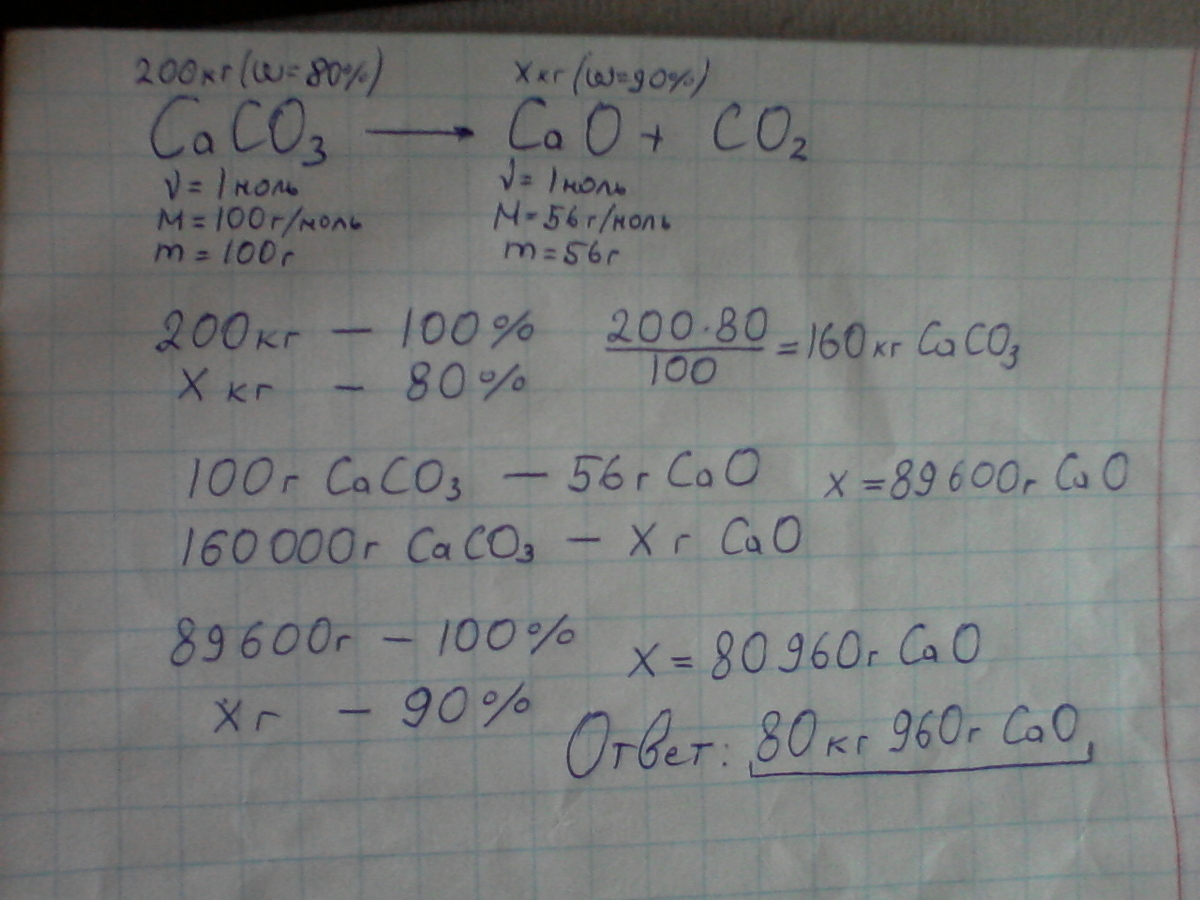 200кг (ω=80%) Xкг (ω=90%)
CaCO₃ → CaO + CO₂
ν = 1 моль ν = 1 моль
M = 100г/моль M = 56г/моль
m = 100г m = 56г
200кг — 100% 200·80/100 = 160кг CaCO₃
X кг — 80%
100г CaCO₃ — 56г CaO x = 89600г CaO
160000г CaCO₃ — Xг CaO
89600г — 100% X = 80960г CaO
Xг — 90%
Ответ: 80кг 960г CaO